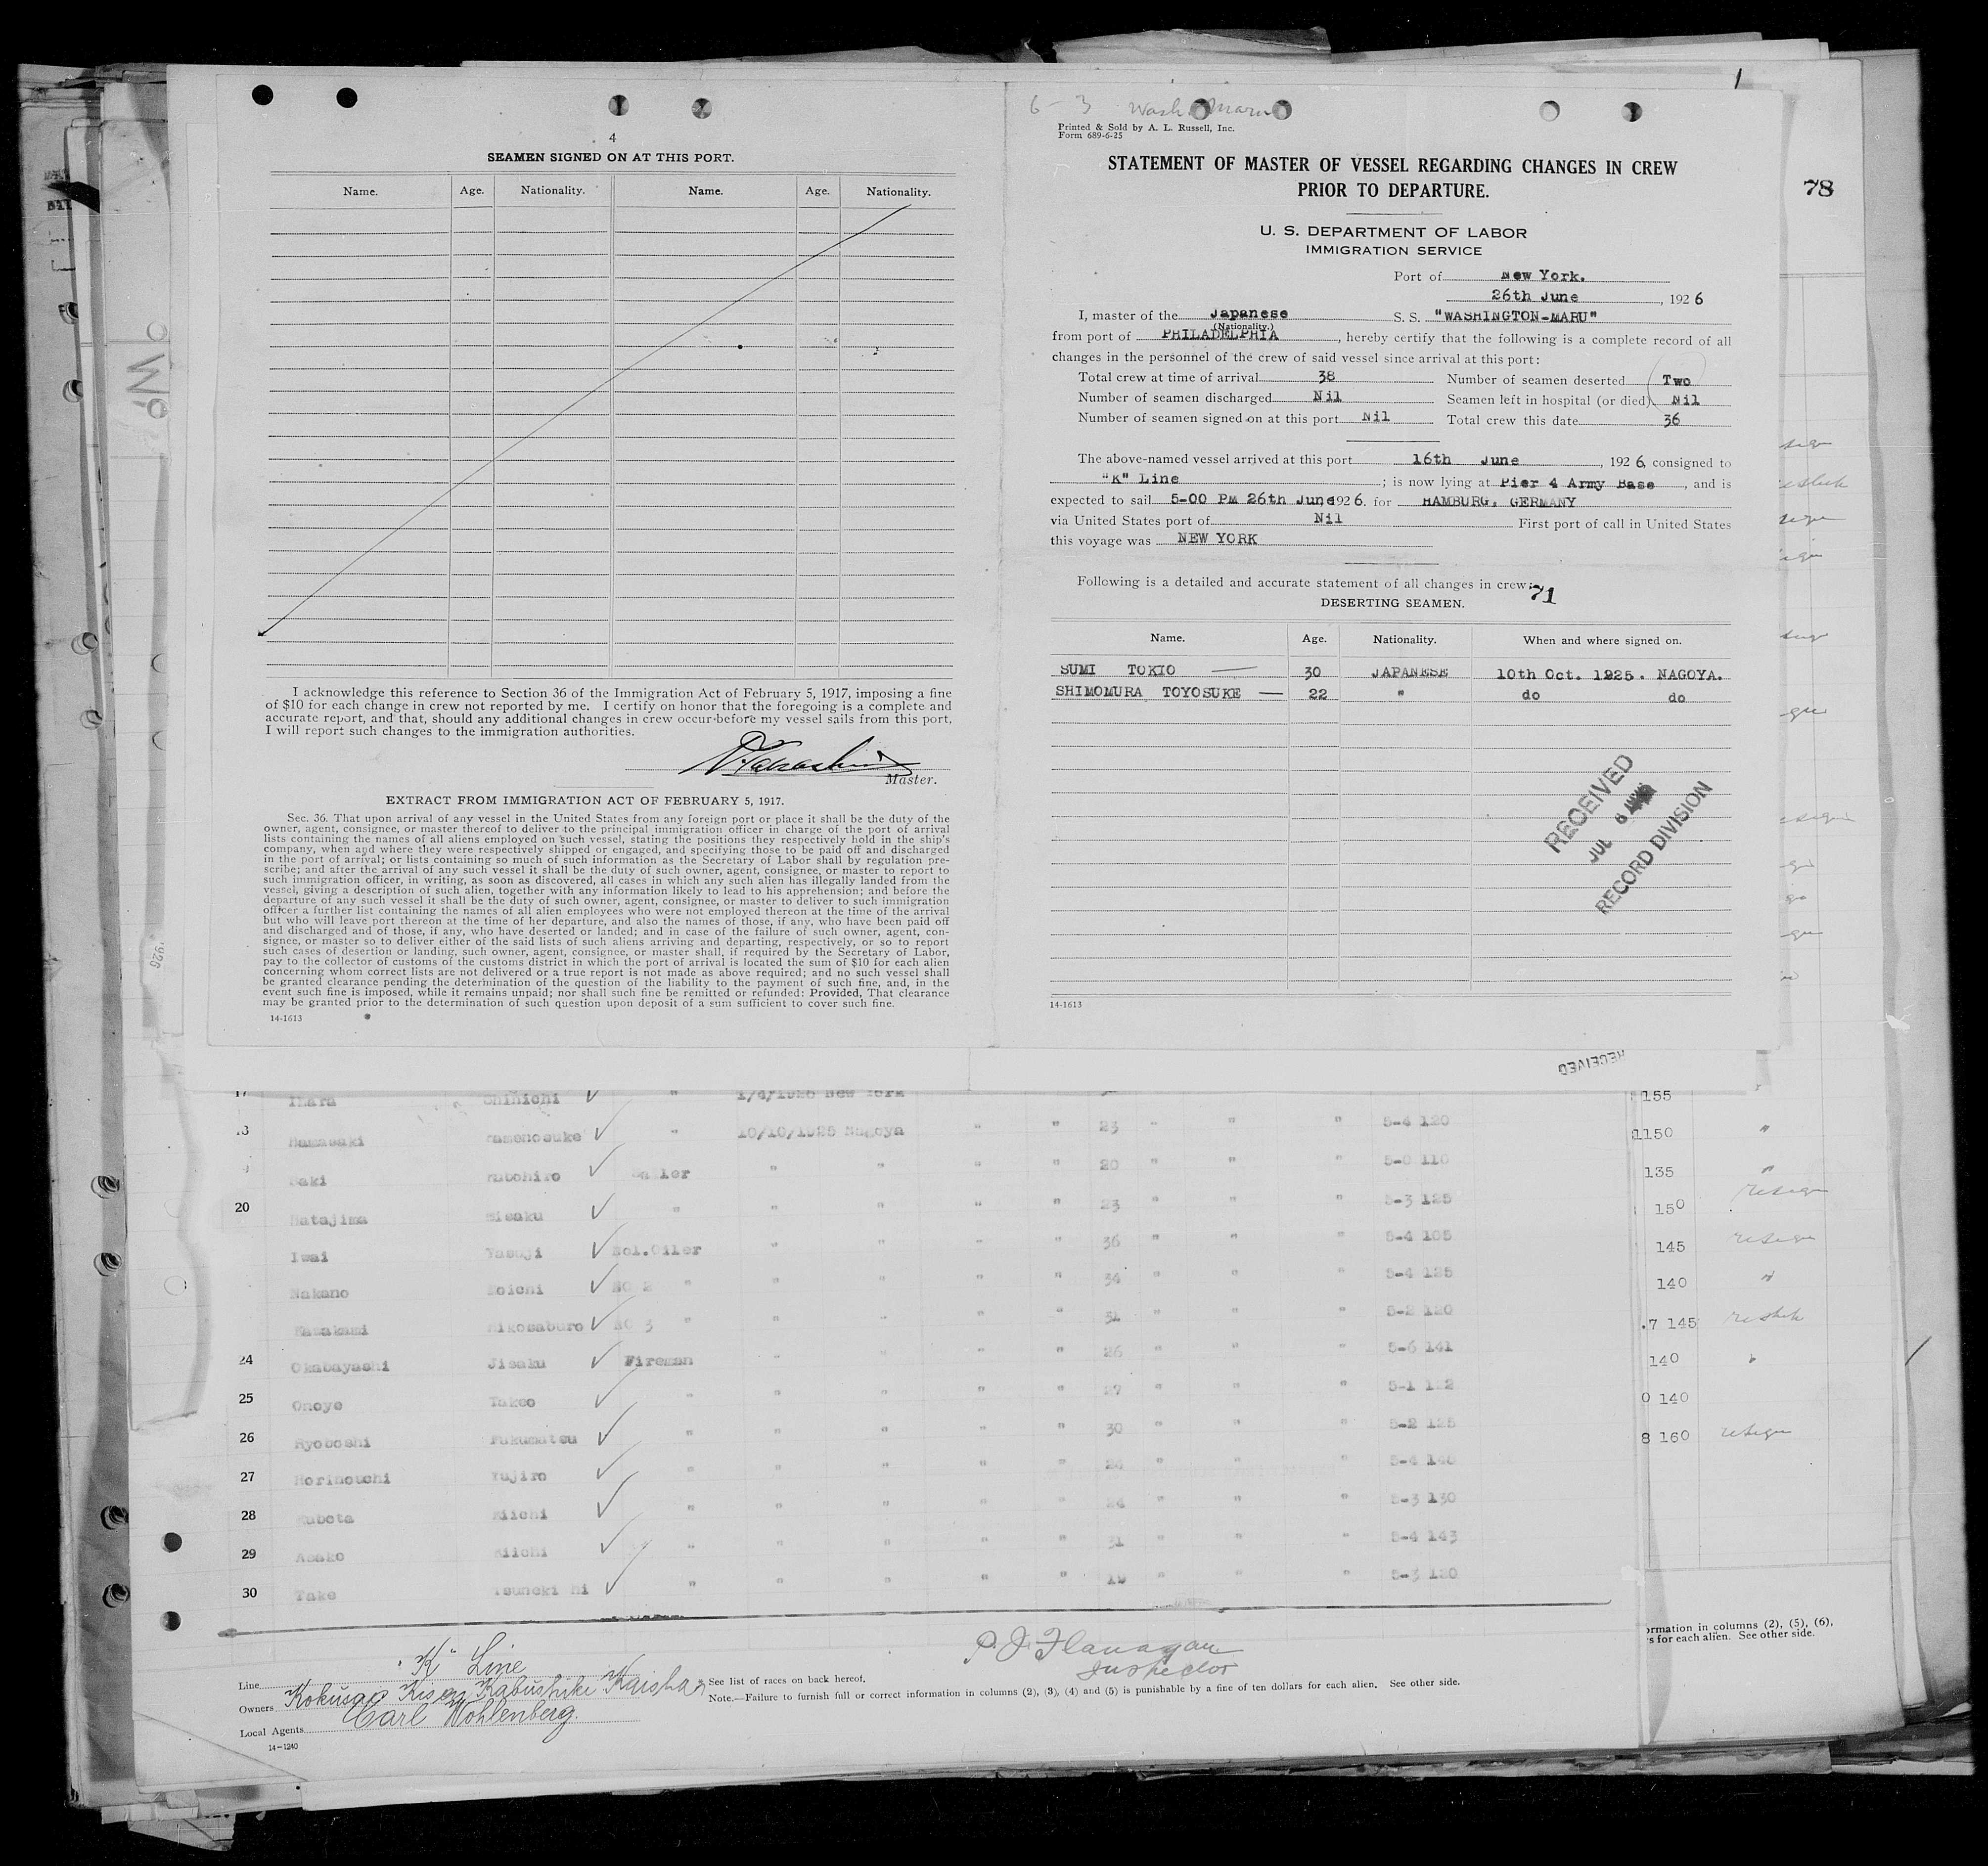 4
SEAMEN SIGNED ON AT THIS PORT.
Name. Age. Nationality. Name. Age. Nationality.
I acknowledge this reference to Section 36 of the Immigration Act of February 5, 1917, imposing a fine
of $10 for each change in crew not reported by me. I certify on honor that the foregoing is a complete and
accurate report, and that, should any additional changes in crew occur before my vessel sails from this port,
I will report such changes to the immigration authorities.
Master.
EXTRACT FROM IMMIGRATION ACT OF FEBRUARY 5, 1917.
Sec. 36. That upon arrival of any vessel in the United States from any foreign port or place it shall be the duty of the
owner, agent, consignee, or master thereof to deliver to the principal immigration officer in charge of the port of arrival
lists containing the names of all aliens employed on such vessel, stating the positions they respectively hold in the ship's
company, when and where they were respectively shipped or engaged, and specifying those to be paid off and discharged
in the port of arrival; or lists containing so much of such information as the Secretary of Labor shall by regulation pre-
scribe; and after the arrival of any such vessel it shall be the duty of such owner, agent, consignee, or master to report to
such immigration officer, in writing, as soon as discovered, all cases in which any such alien has illegally landed from the
vessel, giving a description of such alien, together with any information likely to lead to his apprehension; and before the
departure of any such vessel it shall be the duty of such owner, agent, consignee, or master to deliver to such immigration
officer a further list containing the names of all alien employees who were not employed thereon at the time of the arrival
but who will leave port thereon at the time of her departure, and also the names of those, if any, who have been paid off
and discharged and of those, if any, who have deserted or landed; and in case of the failure of such owner, agent, con-
signee, or master so to deliver either of the said lists of such aliens arriving and departing, respectively, or so to report
such cases of desertion or landing, such owner, agent, consignee, or master shall, if required by the Secretary of Labor,
pay to the collector of customs of the customs district in which the port of arrival is located the sum of $10 for each alien
concerning whom correct lists are not delivered or a true report is not made as above required; and no such vessel shall
be granted clearance pending the determination of the question of the liability to the payment of such fine, and, in the
event such fine is imposed, while it remains unpaid; nor shall such fine be remitted or refunded: Provided, That clearance
may be granted prior to the determination of such question upon deposit of a sum sufficient to cover such fine.
14-1613
6-3 Wash. Maru
Printed & Sold by A. L. Russell, Inc.
Form 689-6-25
STATEMENT OF MASTER OF VESSEL REGARDING CHANGES IN CREW
PRIOR TO DEPARTURE.
78
U. S. DEPARTMENT OF LABOR
IMMIGRATION SERVICE
Port of New York.
26th June, 1926
I, master of the Japanese S. S. "WASHINGTON-MARU"
(Nationality.)
from port of PHILADELPHIA, hereby certify that the following is a complete record of all
changes in the personnel of the crew of said vessel since arrival at this port:
Total crew at time of arrival 38 Number of seamen deserted Two
Number of seamen discharged Nil Seamen left in hospital (or died) Nil
Number of seamen signed on at this port Nil Total crew this date 36
The above-named vessel arrived at this port 16th June, 1926, consigned to
"K" Line; is now lying at Pier 4 Army Base, and is
expected to sail 5-00 PM 26th June 1926. for HAMBURG, GERMANY
via United States port of Nil First port of call in United States
this voyage was NEW YORK
Following is a detailed and accurate statement of all changes in crew:
71
DESERTING SEAMEN.
Name. Age. Nationality. When and where signed on.
SUMI TOKIO — 30 JAPANESE 10th Oct. 1925. NAGOYA.
SHIMOMURA TOYOSUKE — 22 " do do
RECEIVED
JUL 6
RECORD DIVISION
14-1613
RECEIVED
17 Shinichi " New York 155
Hamasaki 10/10/1925 Nagoya " " 23 " " " 5-4 120 1150 "
" " " " 20 " " " 135 "
20 Hatajima Misaku " " " " " 23 " " " 5-3 125 150 resign
Iwai Yasuji Oiler " " " " 36 " " " 5-4 105 145 resign
Nakano Koichi NO 2 " " " " " 34 " " " 5-4 125 140 "
Kawakami NO 3 " " " " " 31 " " " 5-2 120 7 145
24 Okabayashi Jisaku Fireman " " " " 26 " " " 5-6 141 140
25 Onoye Takeo " " " " " 27 " " " 5-1 122 0 140
26 Ryoboshi Fukumatsu " " " " " 30 " " " 5-2 125 8 160 resign
27 Horinouchi Yujiro " " " " " 24 " " " 5-4
28 Kubota Kiichi " " " " " 24 " " " 5-3 130
29 Asako Kiichi " " " " " 31 " " " 5-4 143
30 Take " " " " " 19 " " " 5-3 120
ormation in columns (2), (5), (6),
s for each alien. See other side.
Line "K" Line
P. J. Flanagan
Inspector
See list of races on back hereof.
Owners Kokusai Kisen Kabushiki Kaisha
Note.—Failure to furnish full or correct information in columns (2), (3), (4) and (5) is punishable by a fine of ten dollars for each alien. See other side.
Local Agents Carl Wohlenberg.
14-1240